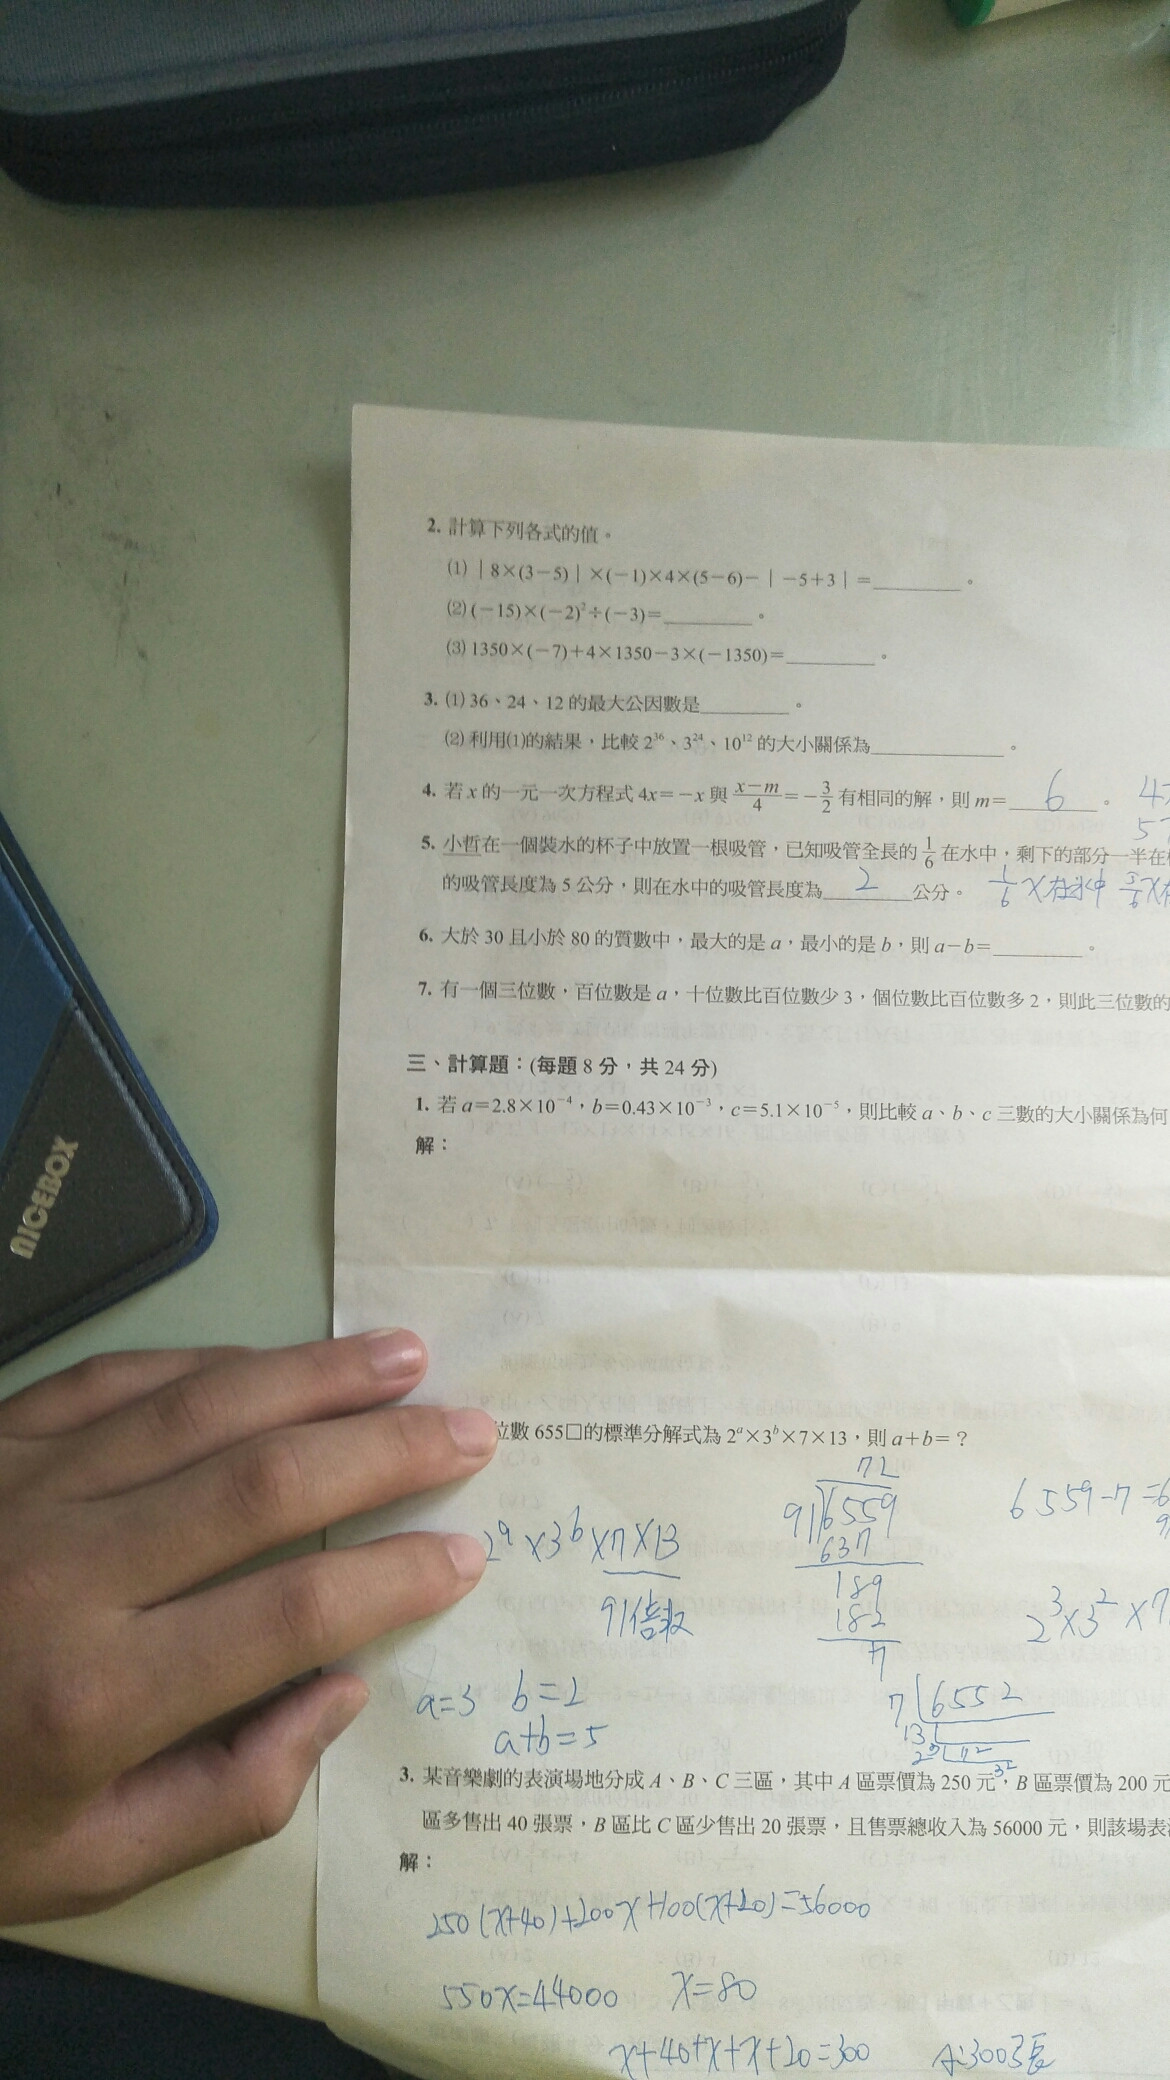 2. 計算下列各式的值。
(1) | 8×(3-5) | ×(-1)×4×(5-6)- | -5+3 | =________。
(2) (-15)×(-2)²÷(-3)=________。
(3) 1350×(-7)+4×1350-3×(-1350)=________。
3. (1) 36、24、12 的最大公因數是________。
(2) 利用(1)的結果,比較 2³⁶、3²⁴、10¹² 的大小關係為________。
4. 若 x 的一元一次方程式 4x=-x 與 (x-m)/4=-3/2 有相同的解,則 m= 6 。 4
5. 小哲在一個裝水的杯子中放置一根吸管,已知吸管全長的 1/6 在水中,剩下的部分一半在
的吸管長度為 5 公分,則在水中的吸管長度為 2 公分。 1/6 x在水中 5/6 x在
6. 大於 30 且小於 80 的質數中,最大的是 a,最小的是 b,則 a-b=________。
7. 有一個三位數,百位數是 a,十位數比百位數少 3,個位數比百位數多 2,則此三位數的
三、計算題:(每題 8 分,共 24 分)
1. 若 a=2.8×10⁻⁴,b=0.43×10⁻³,c=5.1×10⁻⁵,則比較 a、b、c 三數的大小關係為何
解:
NICEBOX
位數 655□的標準分解式為 2ᵃ×3ᵇ×7×13,則 a+b=?
72
91 6559
6559-7=6
637
2ᵃ×3ᵇ×7×13
189
91倍數
182
2³×3²×7
7
a=3 b=2
7 6552
a+b=5
13
2³ 72
3²
3. 某音樂劇的表演場地分成 A、B、C 三區,其中 A 區票價為 250 元,B 區票價為 200 元
區多售出 40 張票,B 區比 C 區少售出 20 張票,且售票總收入為 56000 元,則該場表
解:
250(x+40)+200x+100(x+20)=56000
550x=44000 x=80
x+40+x+x+20=300 A:300張